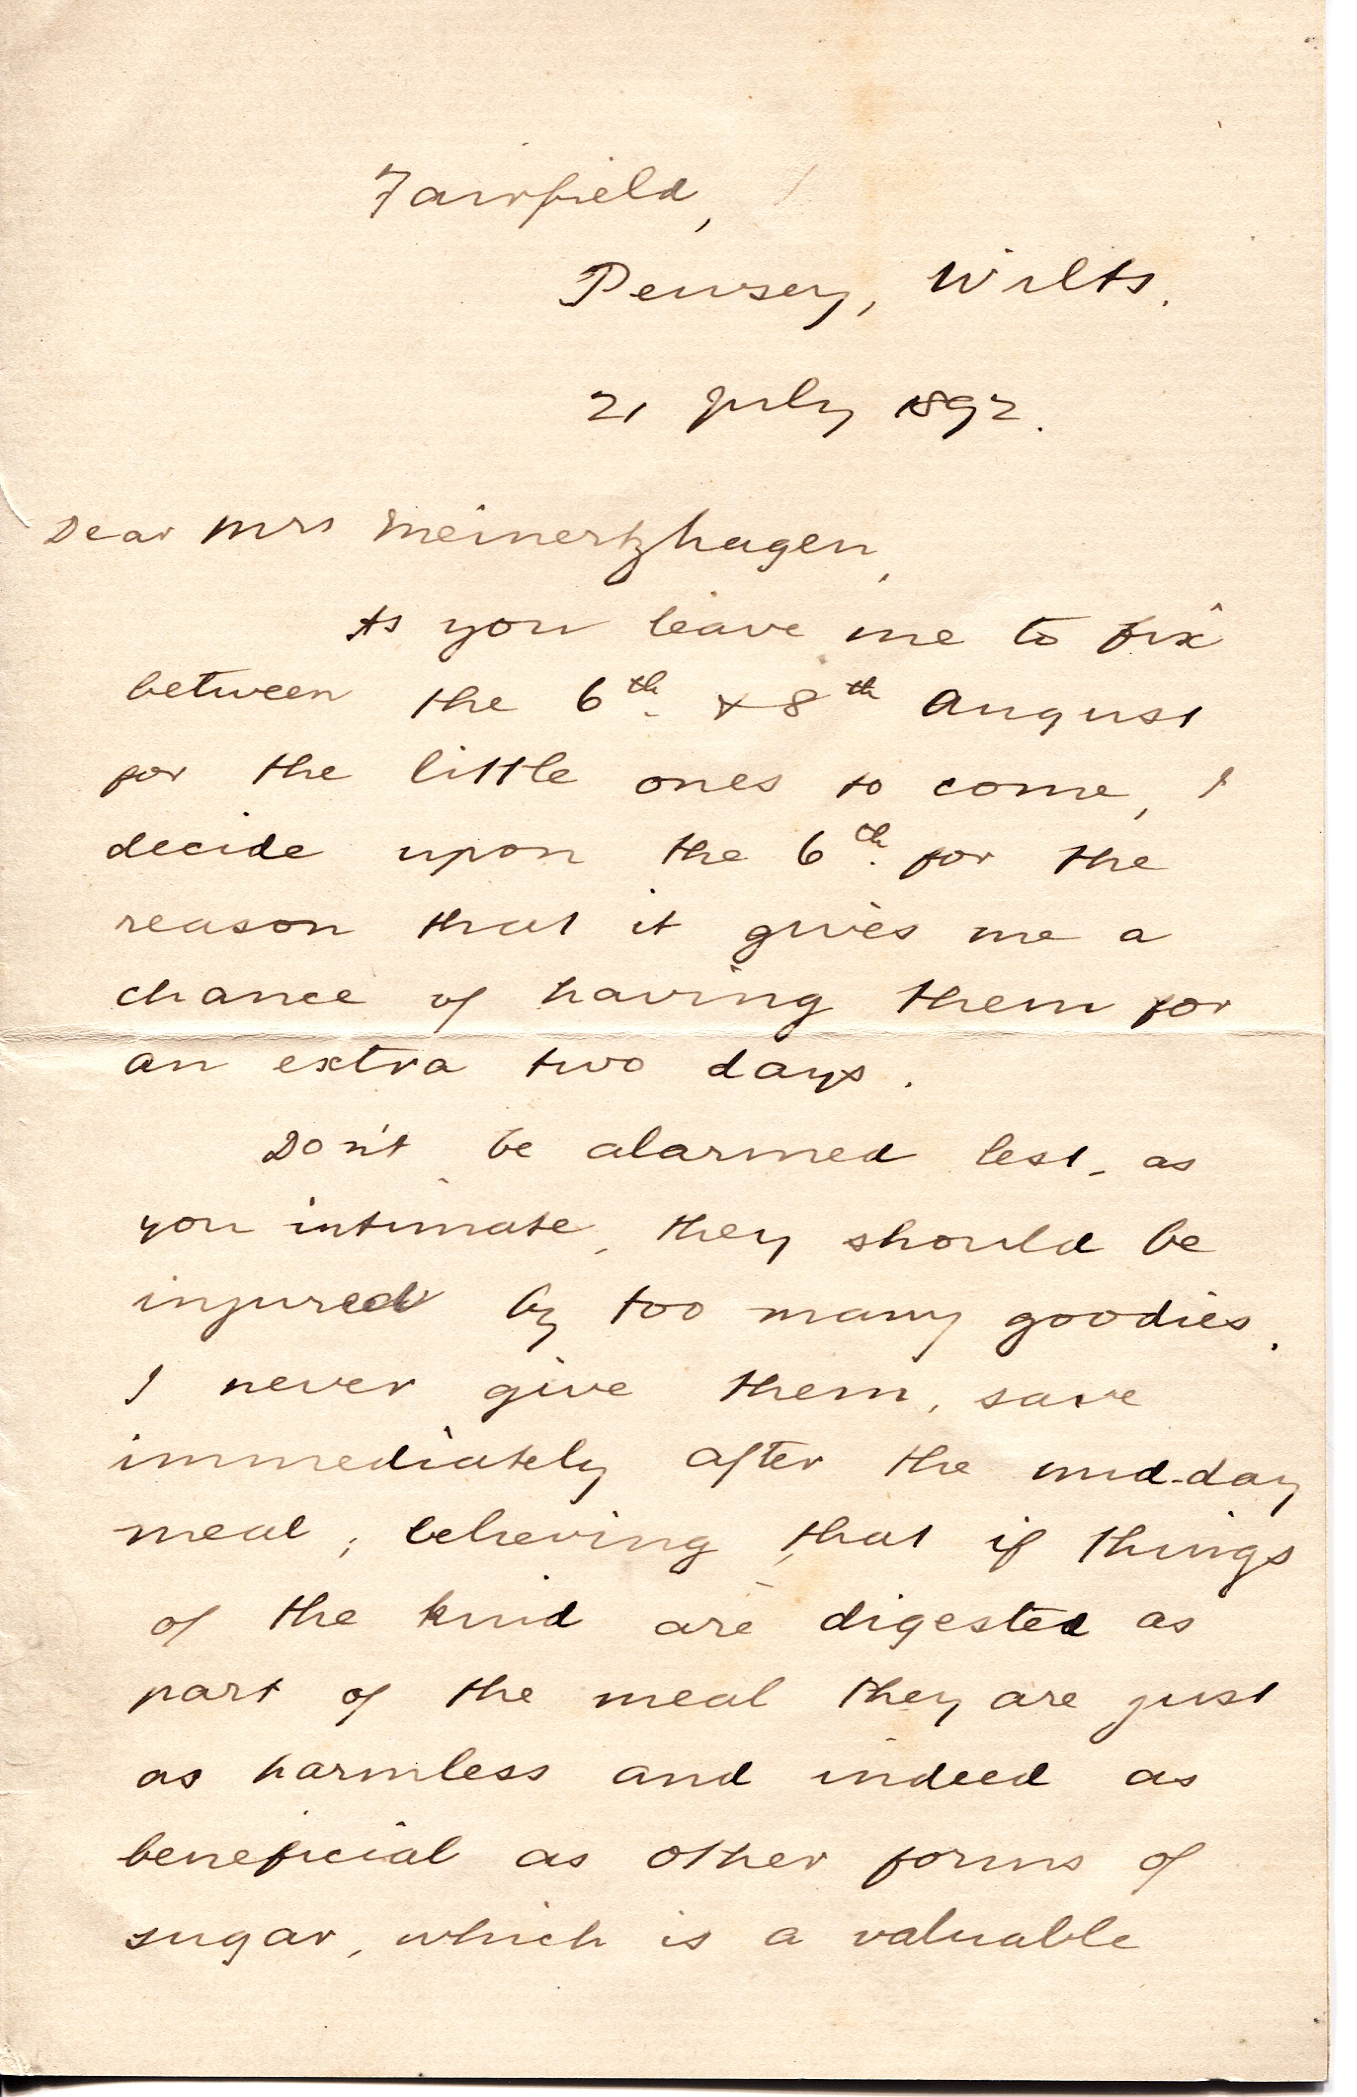 Fairfield,
Pewsey, Wilts.
21 July 1892.
Dear Mrs Meinertzhagen,
As you leave me to fix
between the 6th. & 8th August
for the little ones to come, I
decide upon the 6th. for the
reason that it gives me a
chance of having them for
an extra two days.
Don't be alarmed lest, as
you intimate, they should be
injured by too many goodies.
I never give them, save
immediately after the mid-day
meal; believing that if things
of the kind are digested as
part of the meal they are just
as harmless and indeed as
beneficial as other forms of
sugar, which is a valuable